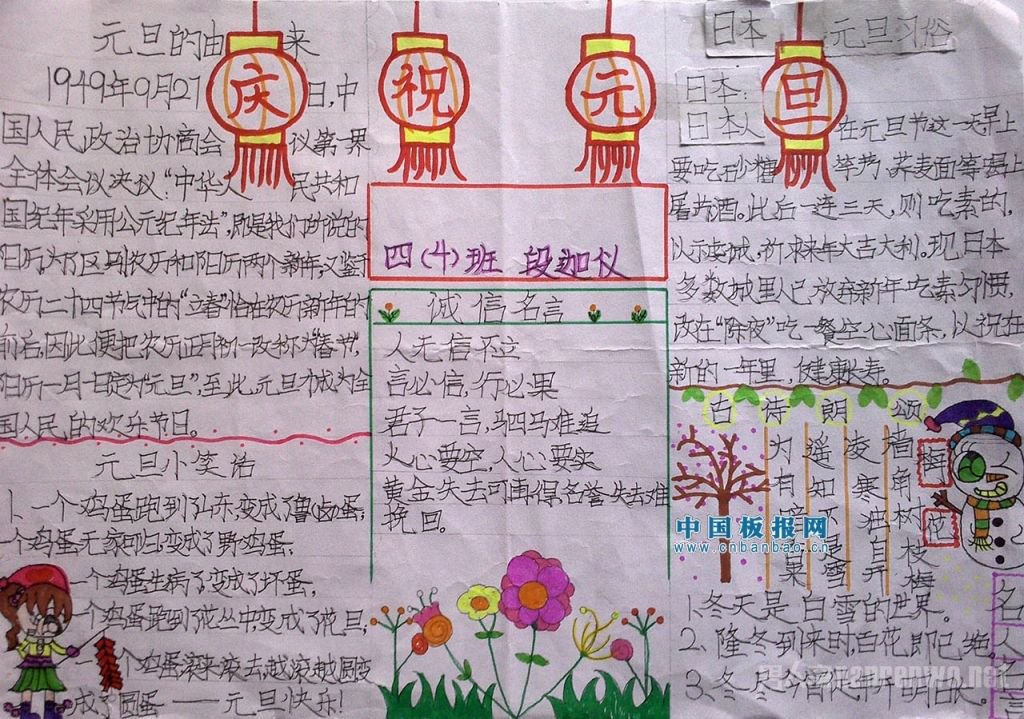 庆祝元旦
元旦的由来
1949年9月27日,中
国人民政治协商会议第一界
全体会议决议"中华人民共和
国纪年采用公元纪年法",即是我们所说的
阳历为了区别农历和阳历两个新年,又鉴于
农历二十四节气中的"立春"恰在农历新年的
前后,因此便把农历正月初一改称为"春节",
阳历一月一日定为"元旦",至此,元旦才成为全
国人民的欢乐节日。
元旦小笑话
1、一个鸡蛋跑到山东,变成了鲁卤蛋;
一个鸡蛋无家可归,变成了野鸡蛋;
一个鸡蛋生病了,变成了坏蛋;
一个鸡蛋跑到花丛中,变成了花旦;
一个鸡蛋滚来滚去,越滚越圆变
成了圆蛋——元旦快乐!
四(4)班 段迦仪
诚信名言
人无信不立
言必信,行必果
君子一言,驷四马难追
火心要空,人心要实
黄金失去可再得,名誉失去难
挽回。
日本 元旦习俗
日本:
日本人在元旦节这一天早上
要吃砂糖竽艿、荞麦面等喝上
屠苏酒。此后一连三天,则吃素的,
以示虔诚,祈求来年大吉大利。现日本
多数城里人已放弃新年吃素习惯,
改在"除夜"吃一餐空心面条,以祝在
新的一年里,健康长寿。
古诗朗颂
梅花
墙角树枝梅
凌寒独自开
遥知不是雪
为有暗
中国板报网
www.cnbanbao.cn
1.冬天是白雪的世界。
2、隆冬到来时,百花即已绝,
3、冬
名人
renrenwo.net